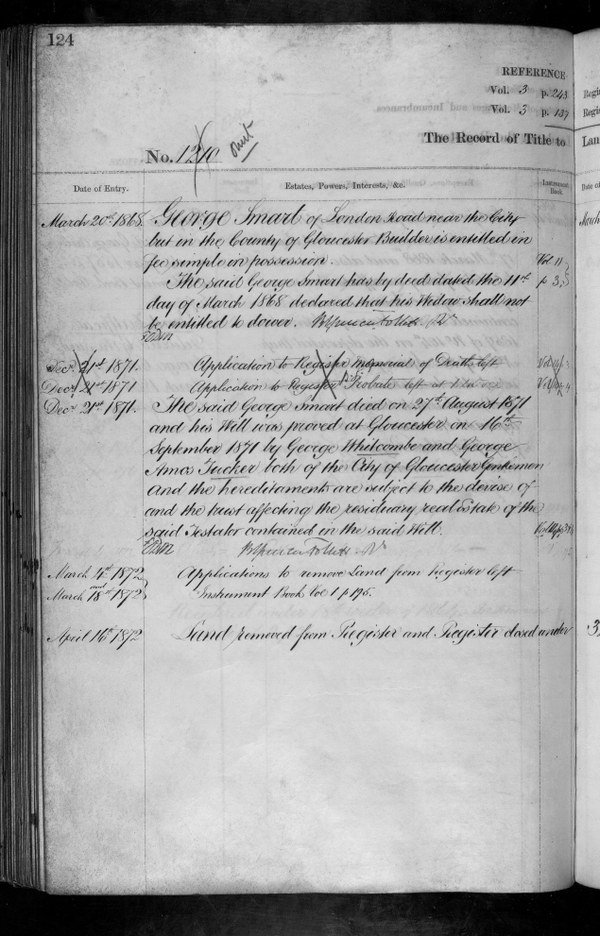 124
REFERENCE
Vol. 3 p. 243
Vol. 3 p. 137
No. 1210
The Record of Title to
Date of Entry.
Estates, Powers, Interests, &c.
Instrument Book.
March 20th 1868. George Smart of London Road near the City
but in the County of Gloucester Builder is entitled in
fee simple in possession. Vol 11
The said George Smart has by deed dated the 11th p 3
day of March 1868 declared that his Widow shall not
be entitled to dower.
Decr 21st 1871. Application to Register Memorial of Death left
Decr 21st 1871 Application to Register Probate left
Decr 21st 1871. The said George Smart died on 27th August 1871
and his Will was proved at Gloucester on 16th
September 1871 by George Whitcombe and George
Amos Tucker both of the City of Gloucester Gentlemen
and the hereditaments are subject to the devise of
and the trust affecting the residuary real Estate of the
said Testator contained in the said Will.
March 4th 1872 Applications to remove Land from Register left
and
March 18th 1872 Instrument Book Vol 1 p 195.
April 16th 1872 Land removed from Register and Register closed under
Regis
Regis
Lan
Date of
March
3